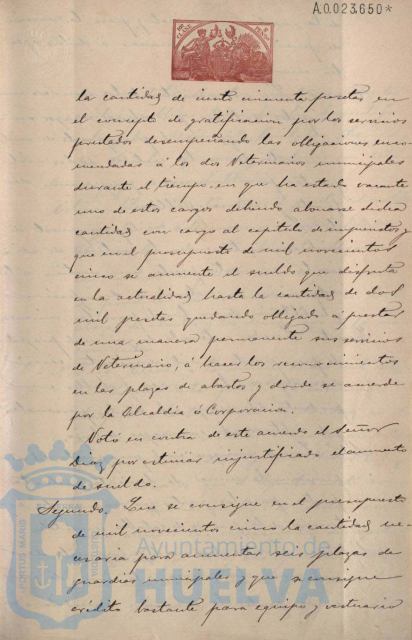 A.0.023.650*
la cantidad de ciento cincuenta pesetas en
el concepto de gratificacion por los servicios
prestados desempeñando las obligaciones enco-
mendadas á los dos Veterinarios municipales
durante el tiempo en que ha estado vacante
uno de estos cargos debiendo abonarse dicha
cantidad con cargo al capitulo de imprevistos y
que en el presupuesto de mil novecientos
cinco se aumente el sueldo que disfruta
en la actualidad hasta la cantidad de dos
mil pesetas quedando obligado á prestar
de una manera permanente sus servicios
de Veterinario, á hacer los reconocimientos
en las plazas de abastos y donde se acuerde
por la Alcaldia ó Corporacion.
Votó en contra de este acuerdo el Señor
Diaz por estimar injustificado el aumento
de sueldo.
Segundo. Que se consigne en el presupuesto
de mil novecientos cinco la cantidad ne-
cesaria para aumentar seis plazas de
guardias municipales y que se consigne
crédito bastante para equipo y vestuario
PORTUS MARIS
Ayuntamiento de
HUELVA